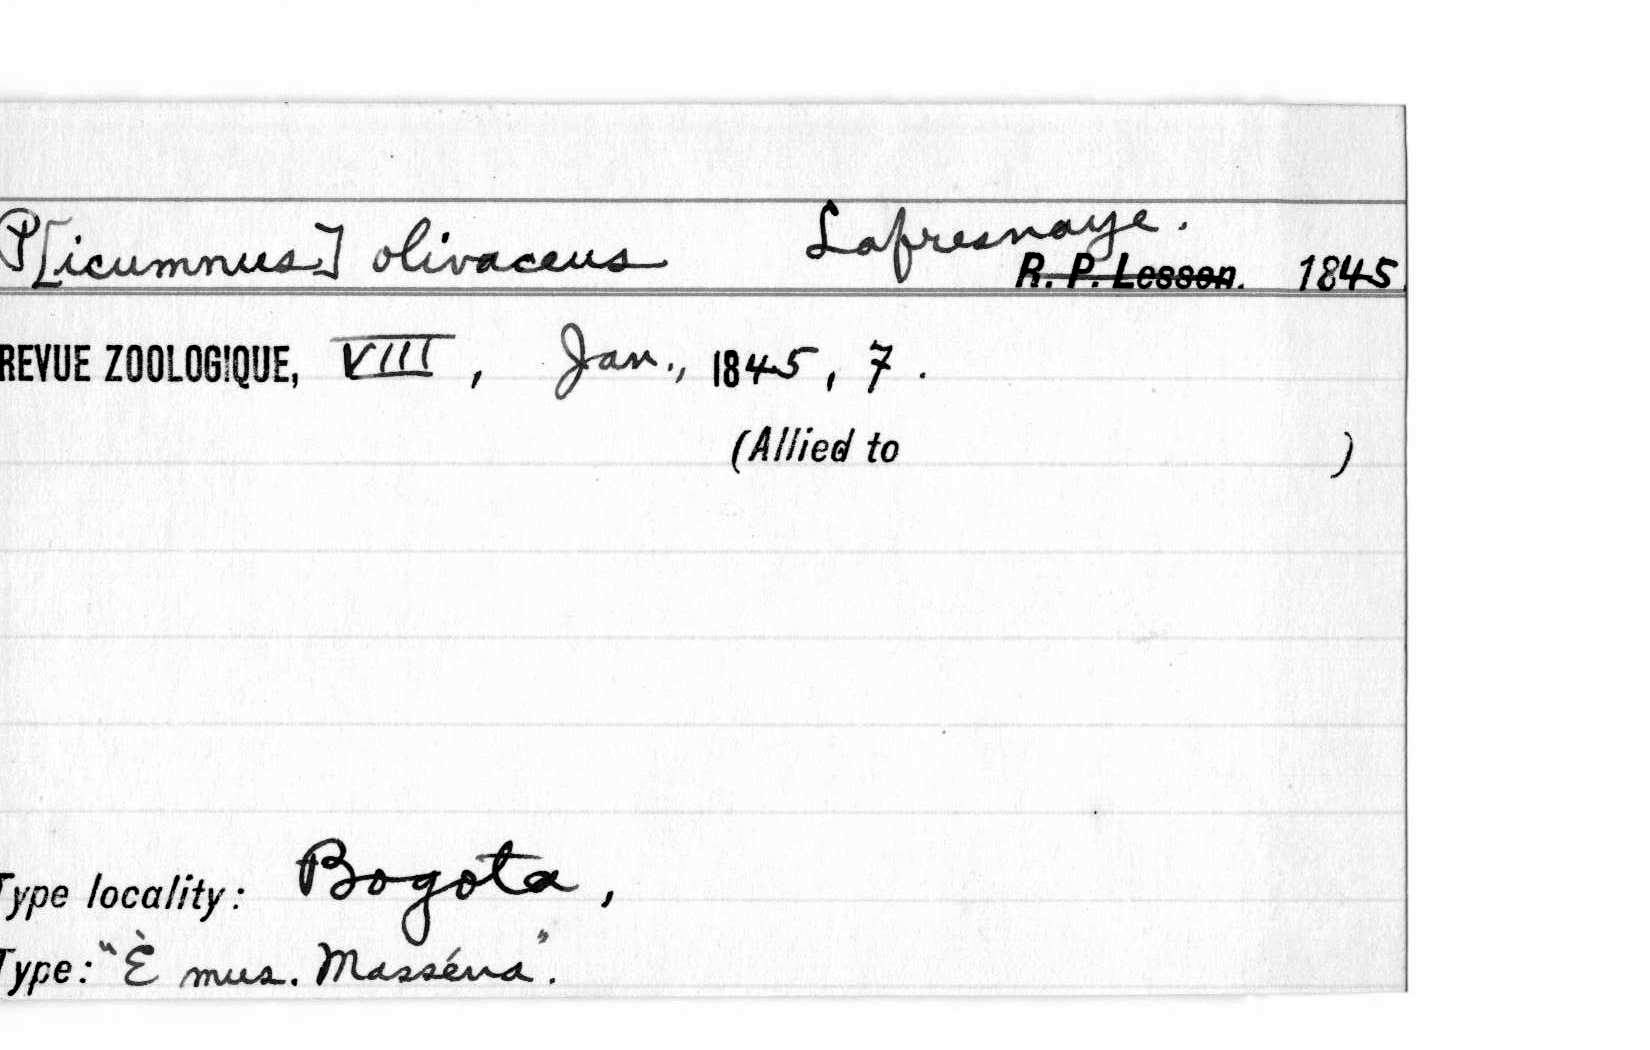 P[icumnus] olivaceus Lafresnaye.
R. P. Lesson. 1845.
REVUE ZOOLOGIQUE, VIII, Jan., 1845, 7.
(Allied to )
Type locality: Bogota,
Type: "È mus. Masséna".